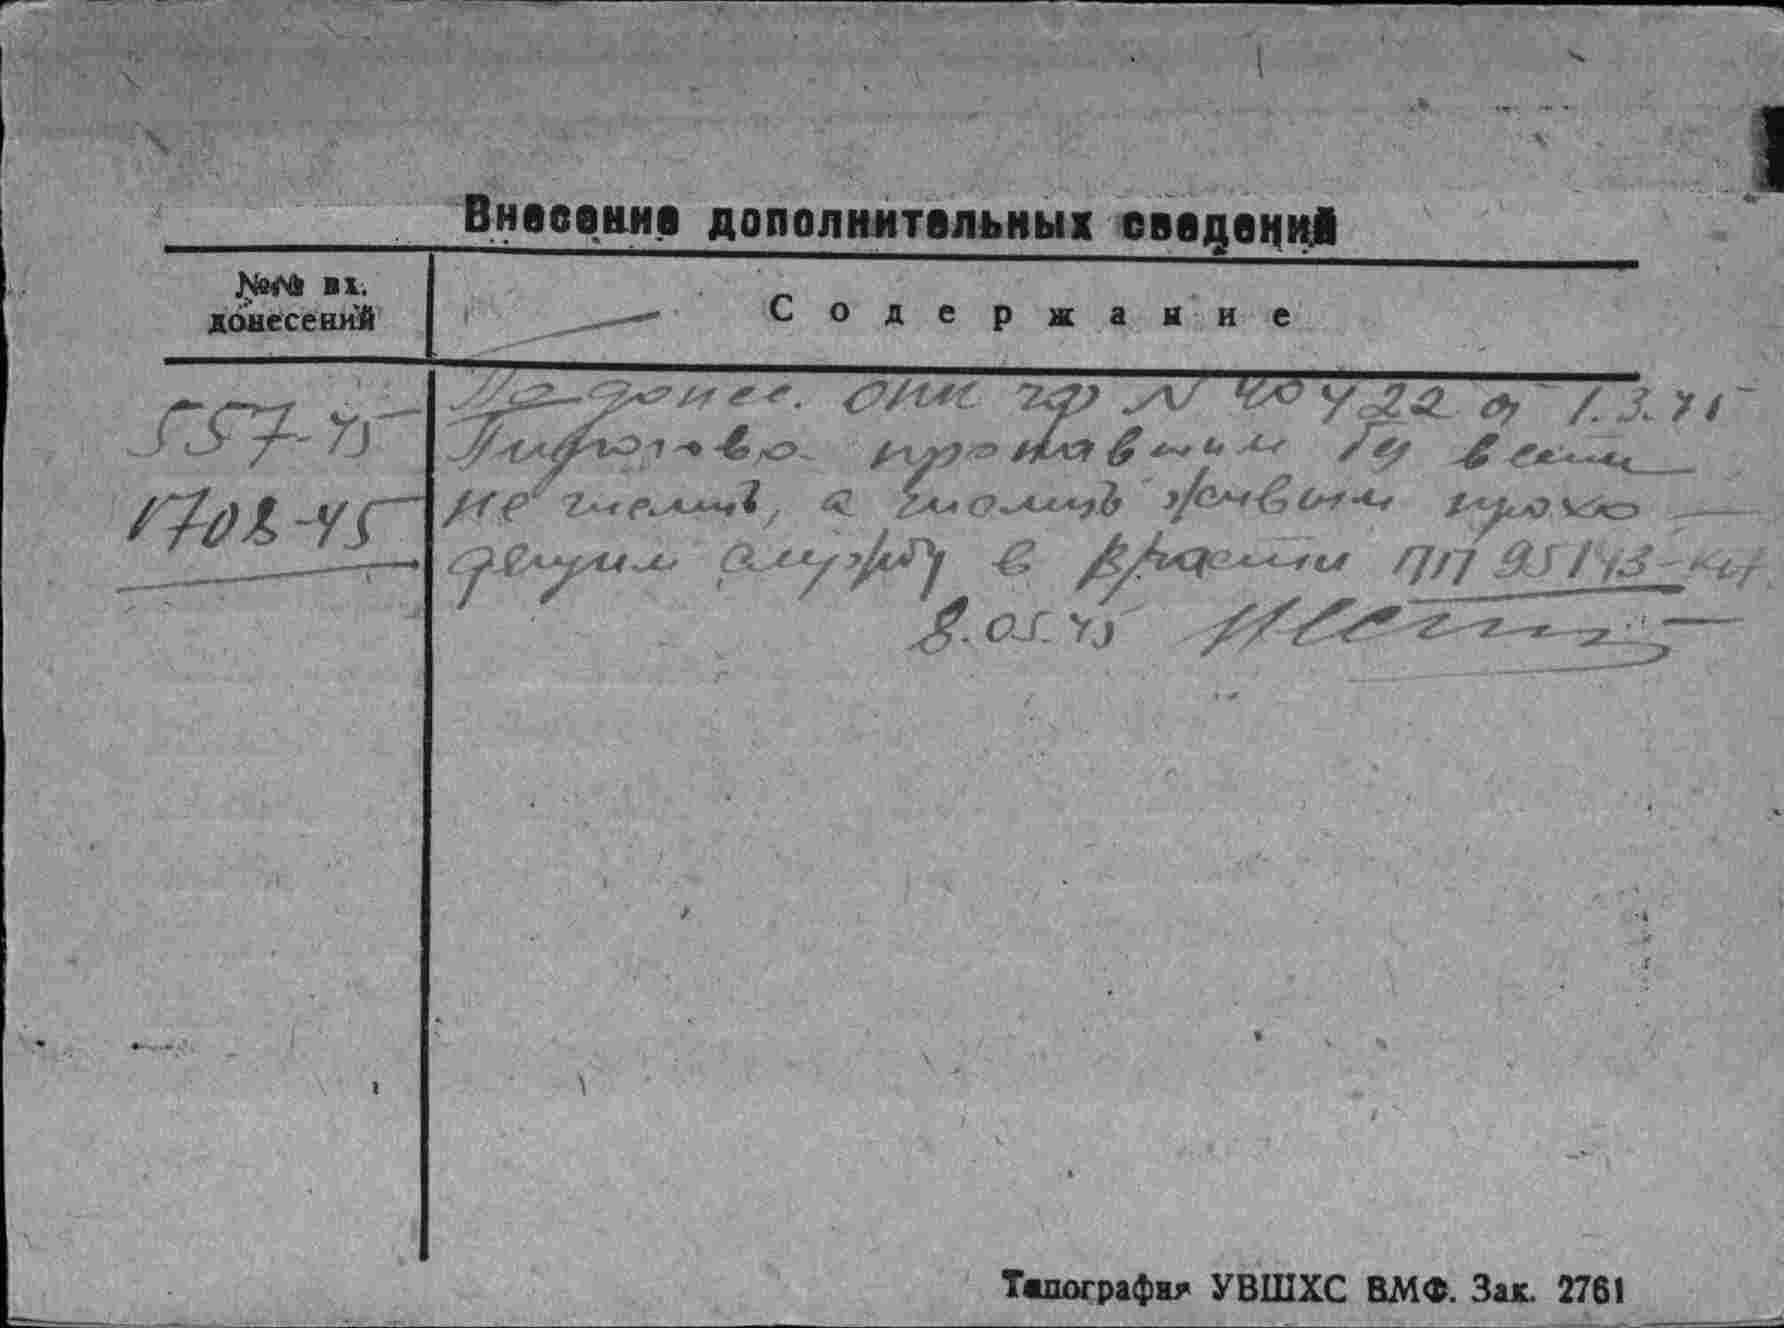 Внесение дополнительных сведений
№№ вх.
донесений
Содержание
557-45
1702-45
По донес. ОПК ЧФ N 40422 от 1.3.45
пропавшим б/ вести
не числить, а числить живым прохо
дящим службу в ПП 95143
8.05.45
Типография УВШХС ВМФ. Зак. 2761